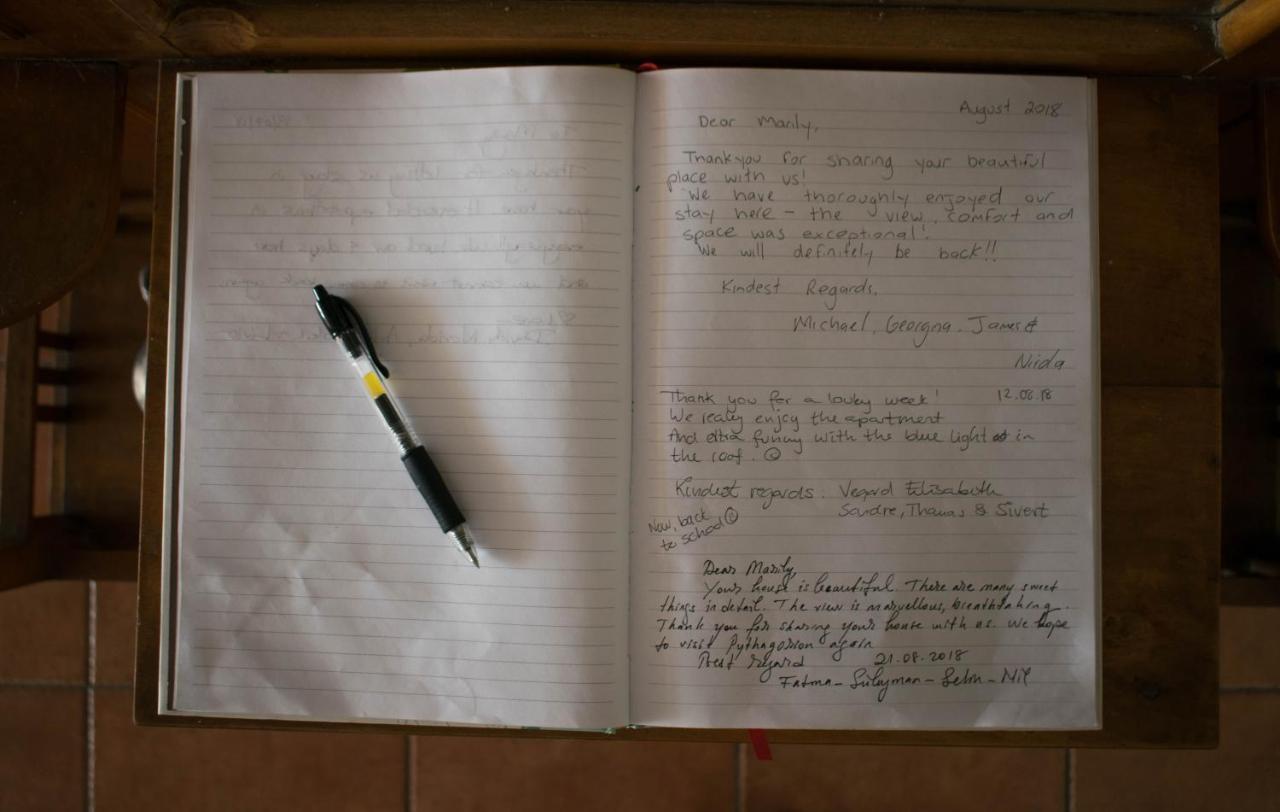 August 2018
Dear Marily,
Thank you for sharing your beautiful
place with us!
We have thoroughly enjoyed our
stay here - the view, comfort and
space was exceptional!
We will definitely be back!!
Kindest Regards,
Michael, Georgina, James &
Thank you for a lovley week! 12.08.18
We realey enjoy the apartment
And extra funny with the blue light in
the roof. ☺
Kindest regards. Vegard Elisabeth
Sondre, Thomas & Sivert
Now, back
to school ☺
Dear Marily,
Your house is beautiful. There are many sweet
things in detail. The view is marvellous, breathtaking.
Thank you for sharing your house with us. We hope
to visit Pythagorion again
Best regard 21.08.2018
Fatma - Süleyman - Selin - Nil